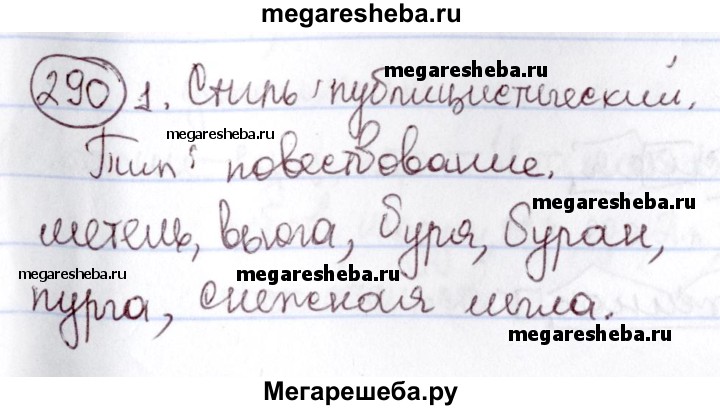 megaresheba.ru
290 1. Стиль: публицистический.
megaresheba.ru
megaresheba.ru
Тип: повествование.
megaresheba.ru
метель, вьюга, буря, буран,
megaresheba.ru
megaresheba.ru
пурга, снежная мгла.
megaresheba.ru
Мегарешеба.ру